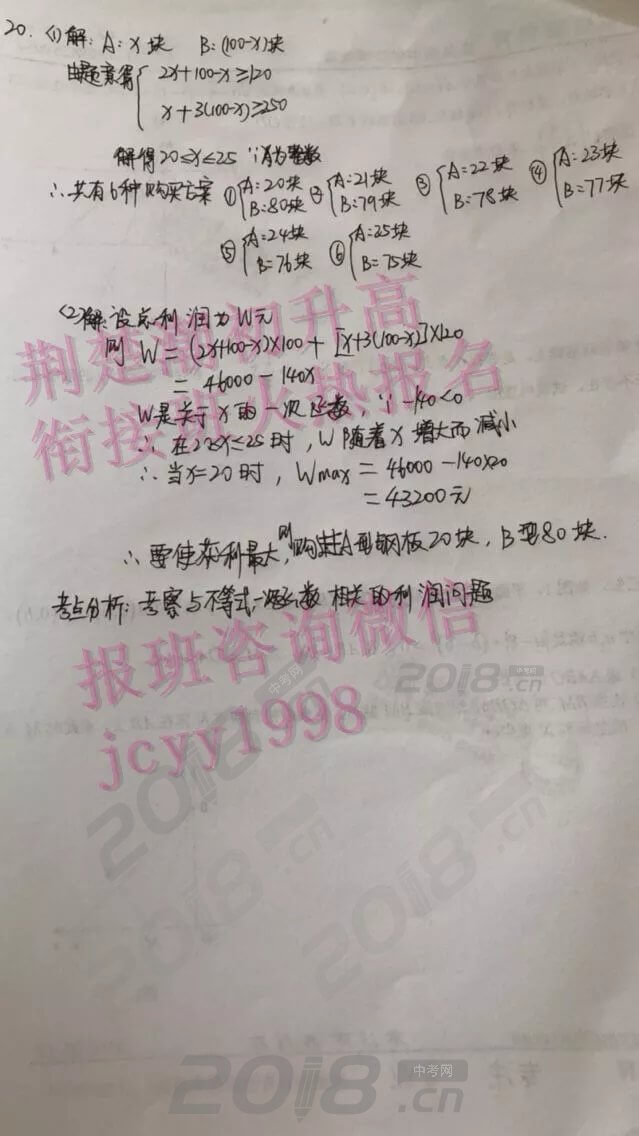 20. (1)解: A: x块 B: (100-x)块
由题意得 { 2x+100-x≥120
x+3(100-x)≥250
解得20≤x≤25 ∵x为整数
∴共有6种购买方案 ① { A=20块 B=80块 ② { A=21块 B=79块 ③ { A=22块 B=78块 ④ { A=23块 B=77块
⑤ { A=24块 B=76块 ⑥ { A=25块 B=75块
(2)解:设总利润为W元
则 W = (2x+100-x)×100 + [x+3(100-x)]×120
= 46000-140x
W是关于x的一次函数, ∵-140<0
∴ 在22≤x≤25时, W随着x增大而减小
∴当x=20时, Wmax = 46000-140×20
= 43200元
∴要使获利最大, 则购进A型钢板20块, B型80块.
考点分析: 考察与不等式,一次函数相关的利润问题
荆楚初升高
衔接班火热报名
报班咨询微信
jcyy1998
中考网
2018.cn
2018.cn
2018.cn
中考网
2018.cn